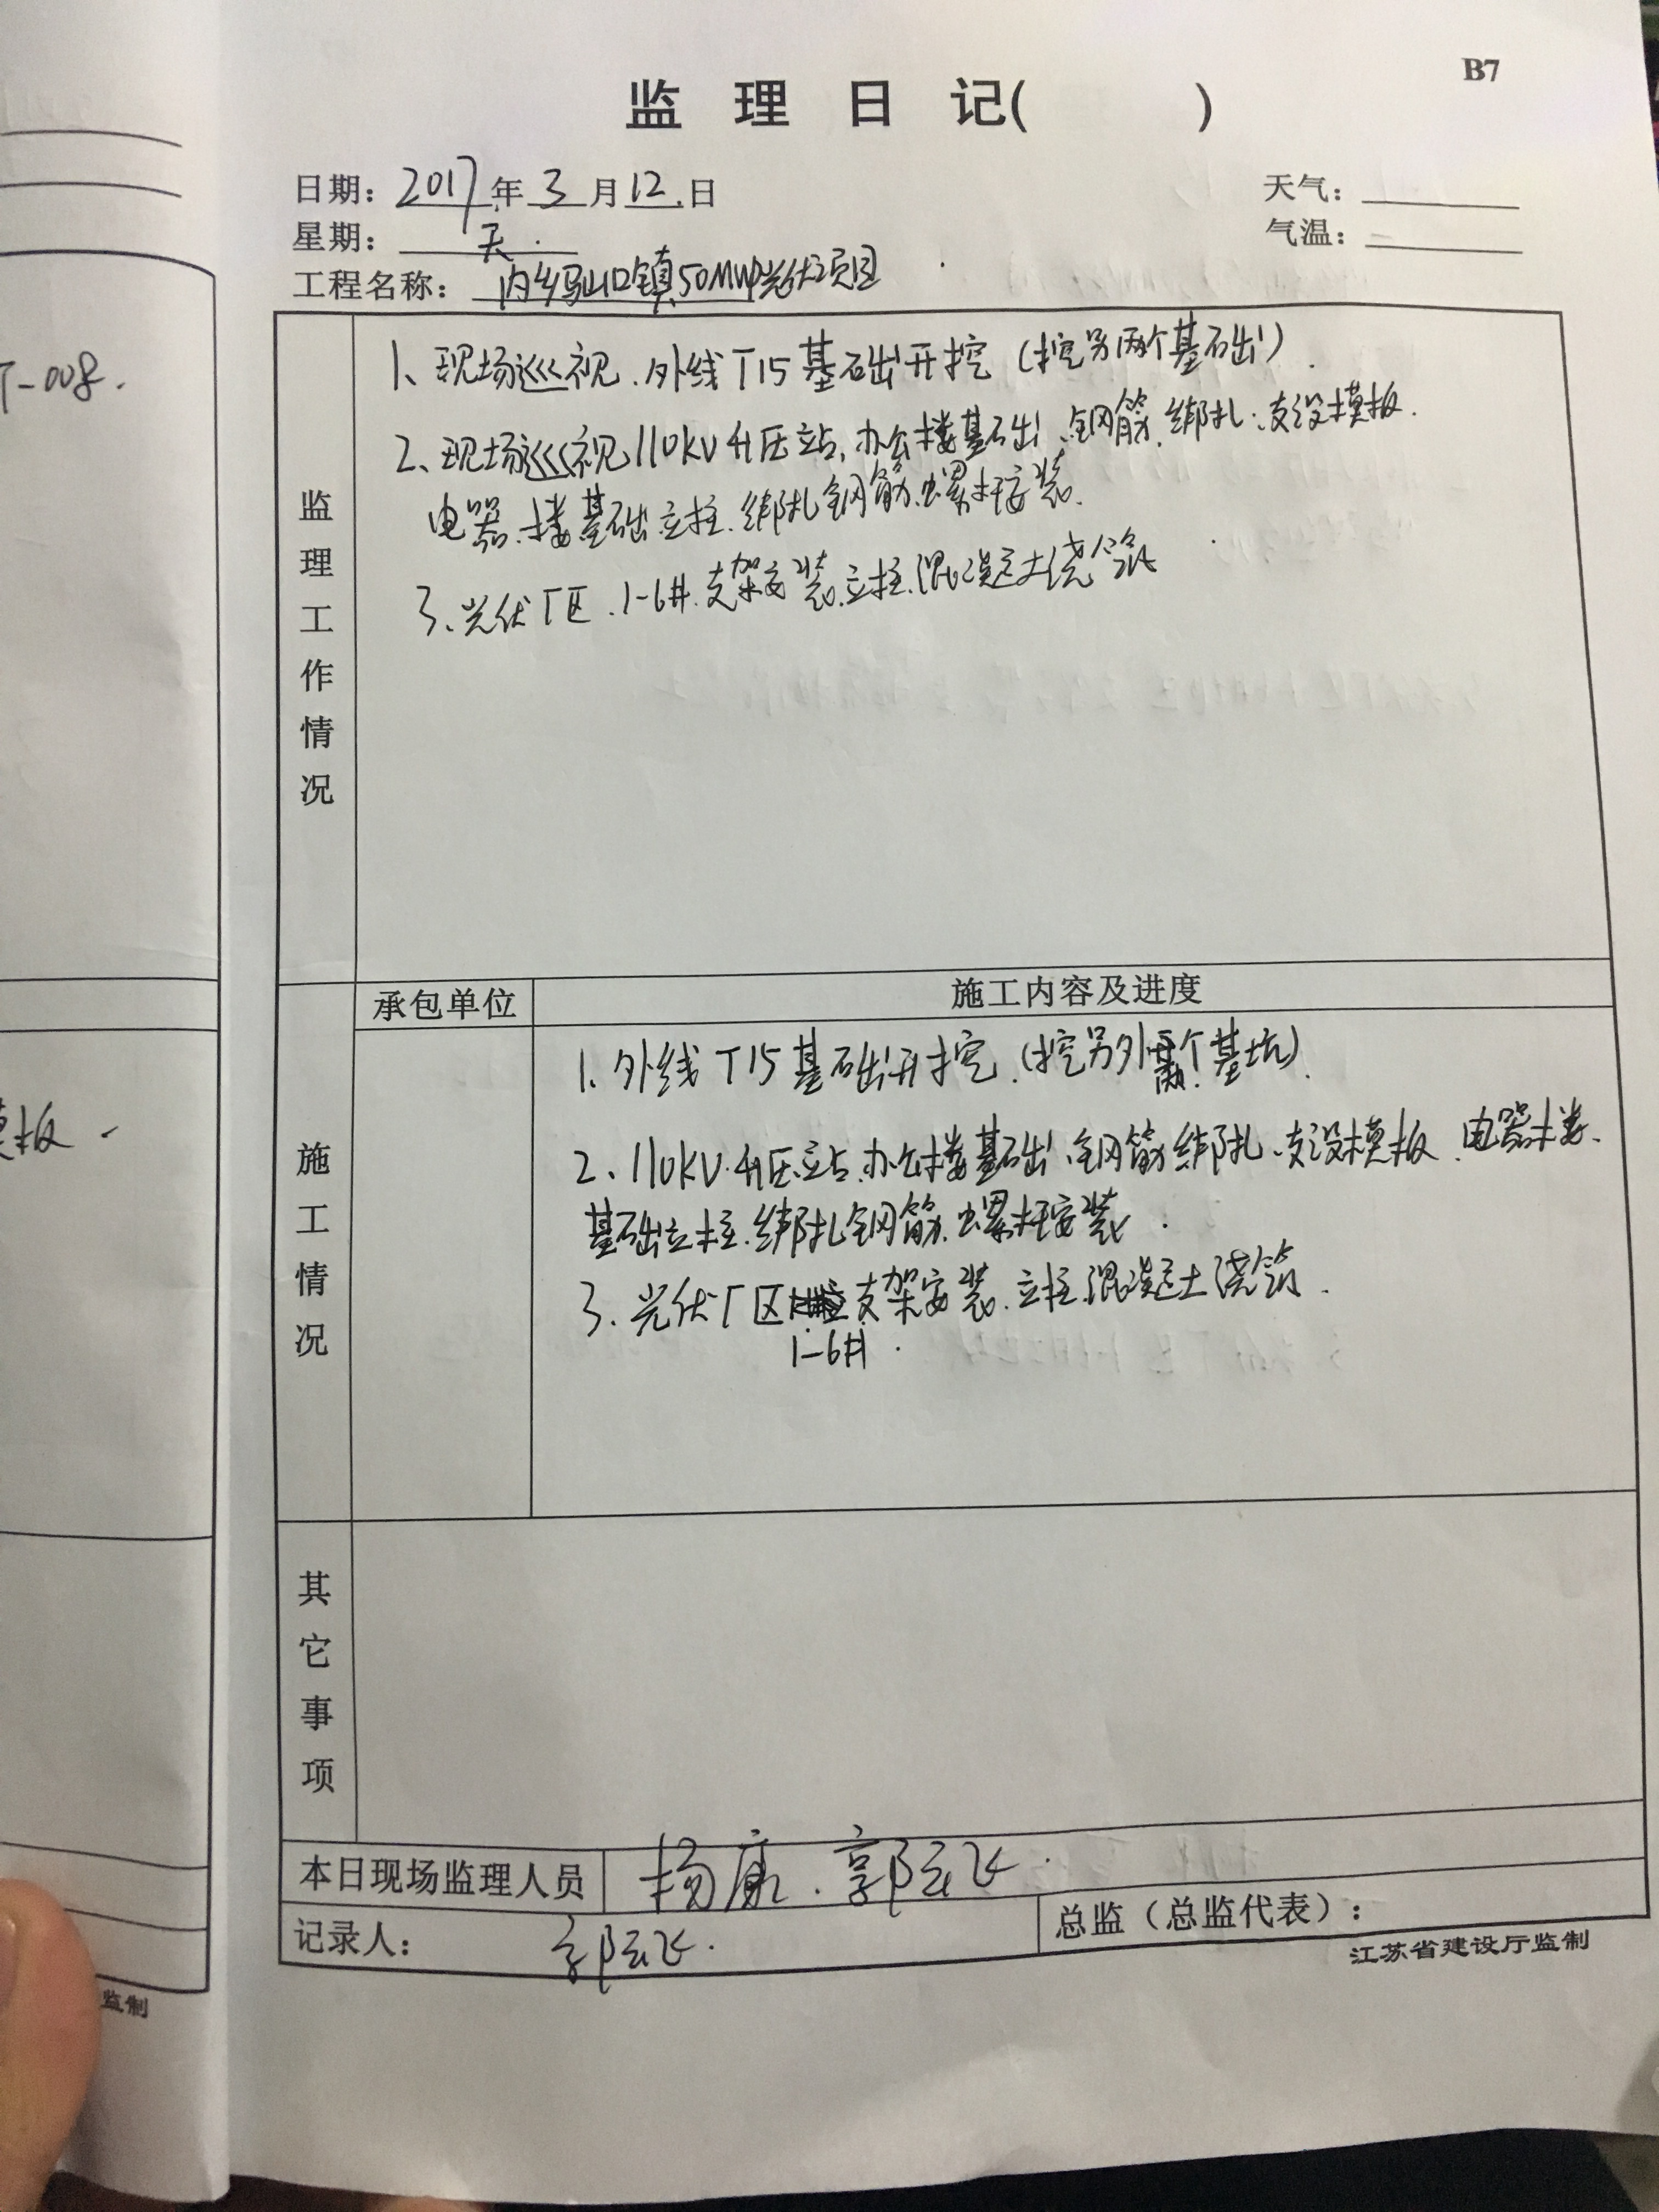 B7
监 理 日 记( )
日期: 2017年 3 月 12 日
天气:
星期: 天
气温:
工程名称: 内乡马山口镇50MWP光伏项目
T-008.
监理工作情况
1、现场巡视.外线T15基础开挖(挖另两个基础).
2、现场巡视110KV升压站,办公楼基础、钢筋.绑扎.支设模板.
电器.楼基础.立柱.绑扎钢筋.螺杆安装.
3、光伏厂区.1-6#.支架安装.立柱.混凝土浇筑
承包单位
施工内容及进度
施工情况
1.外线T15基础开挖.(挖另外两个基坑).
模板.
2、110KV.升压站.办公楼基础.钢筋绑扎.支设模板.电器楼.
基础立柱.绑扎钢筋.螺杆安装.
3.光伏厂区支架安装.立柱混凝土浇筑.
1-6#.
其它事项
本日现场监理人员 杨康.郭云飞.
记录人: 郭云飞.
总监(总监代表):
江苏省建设厅监制
监制